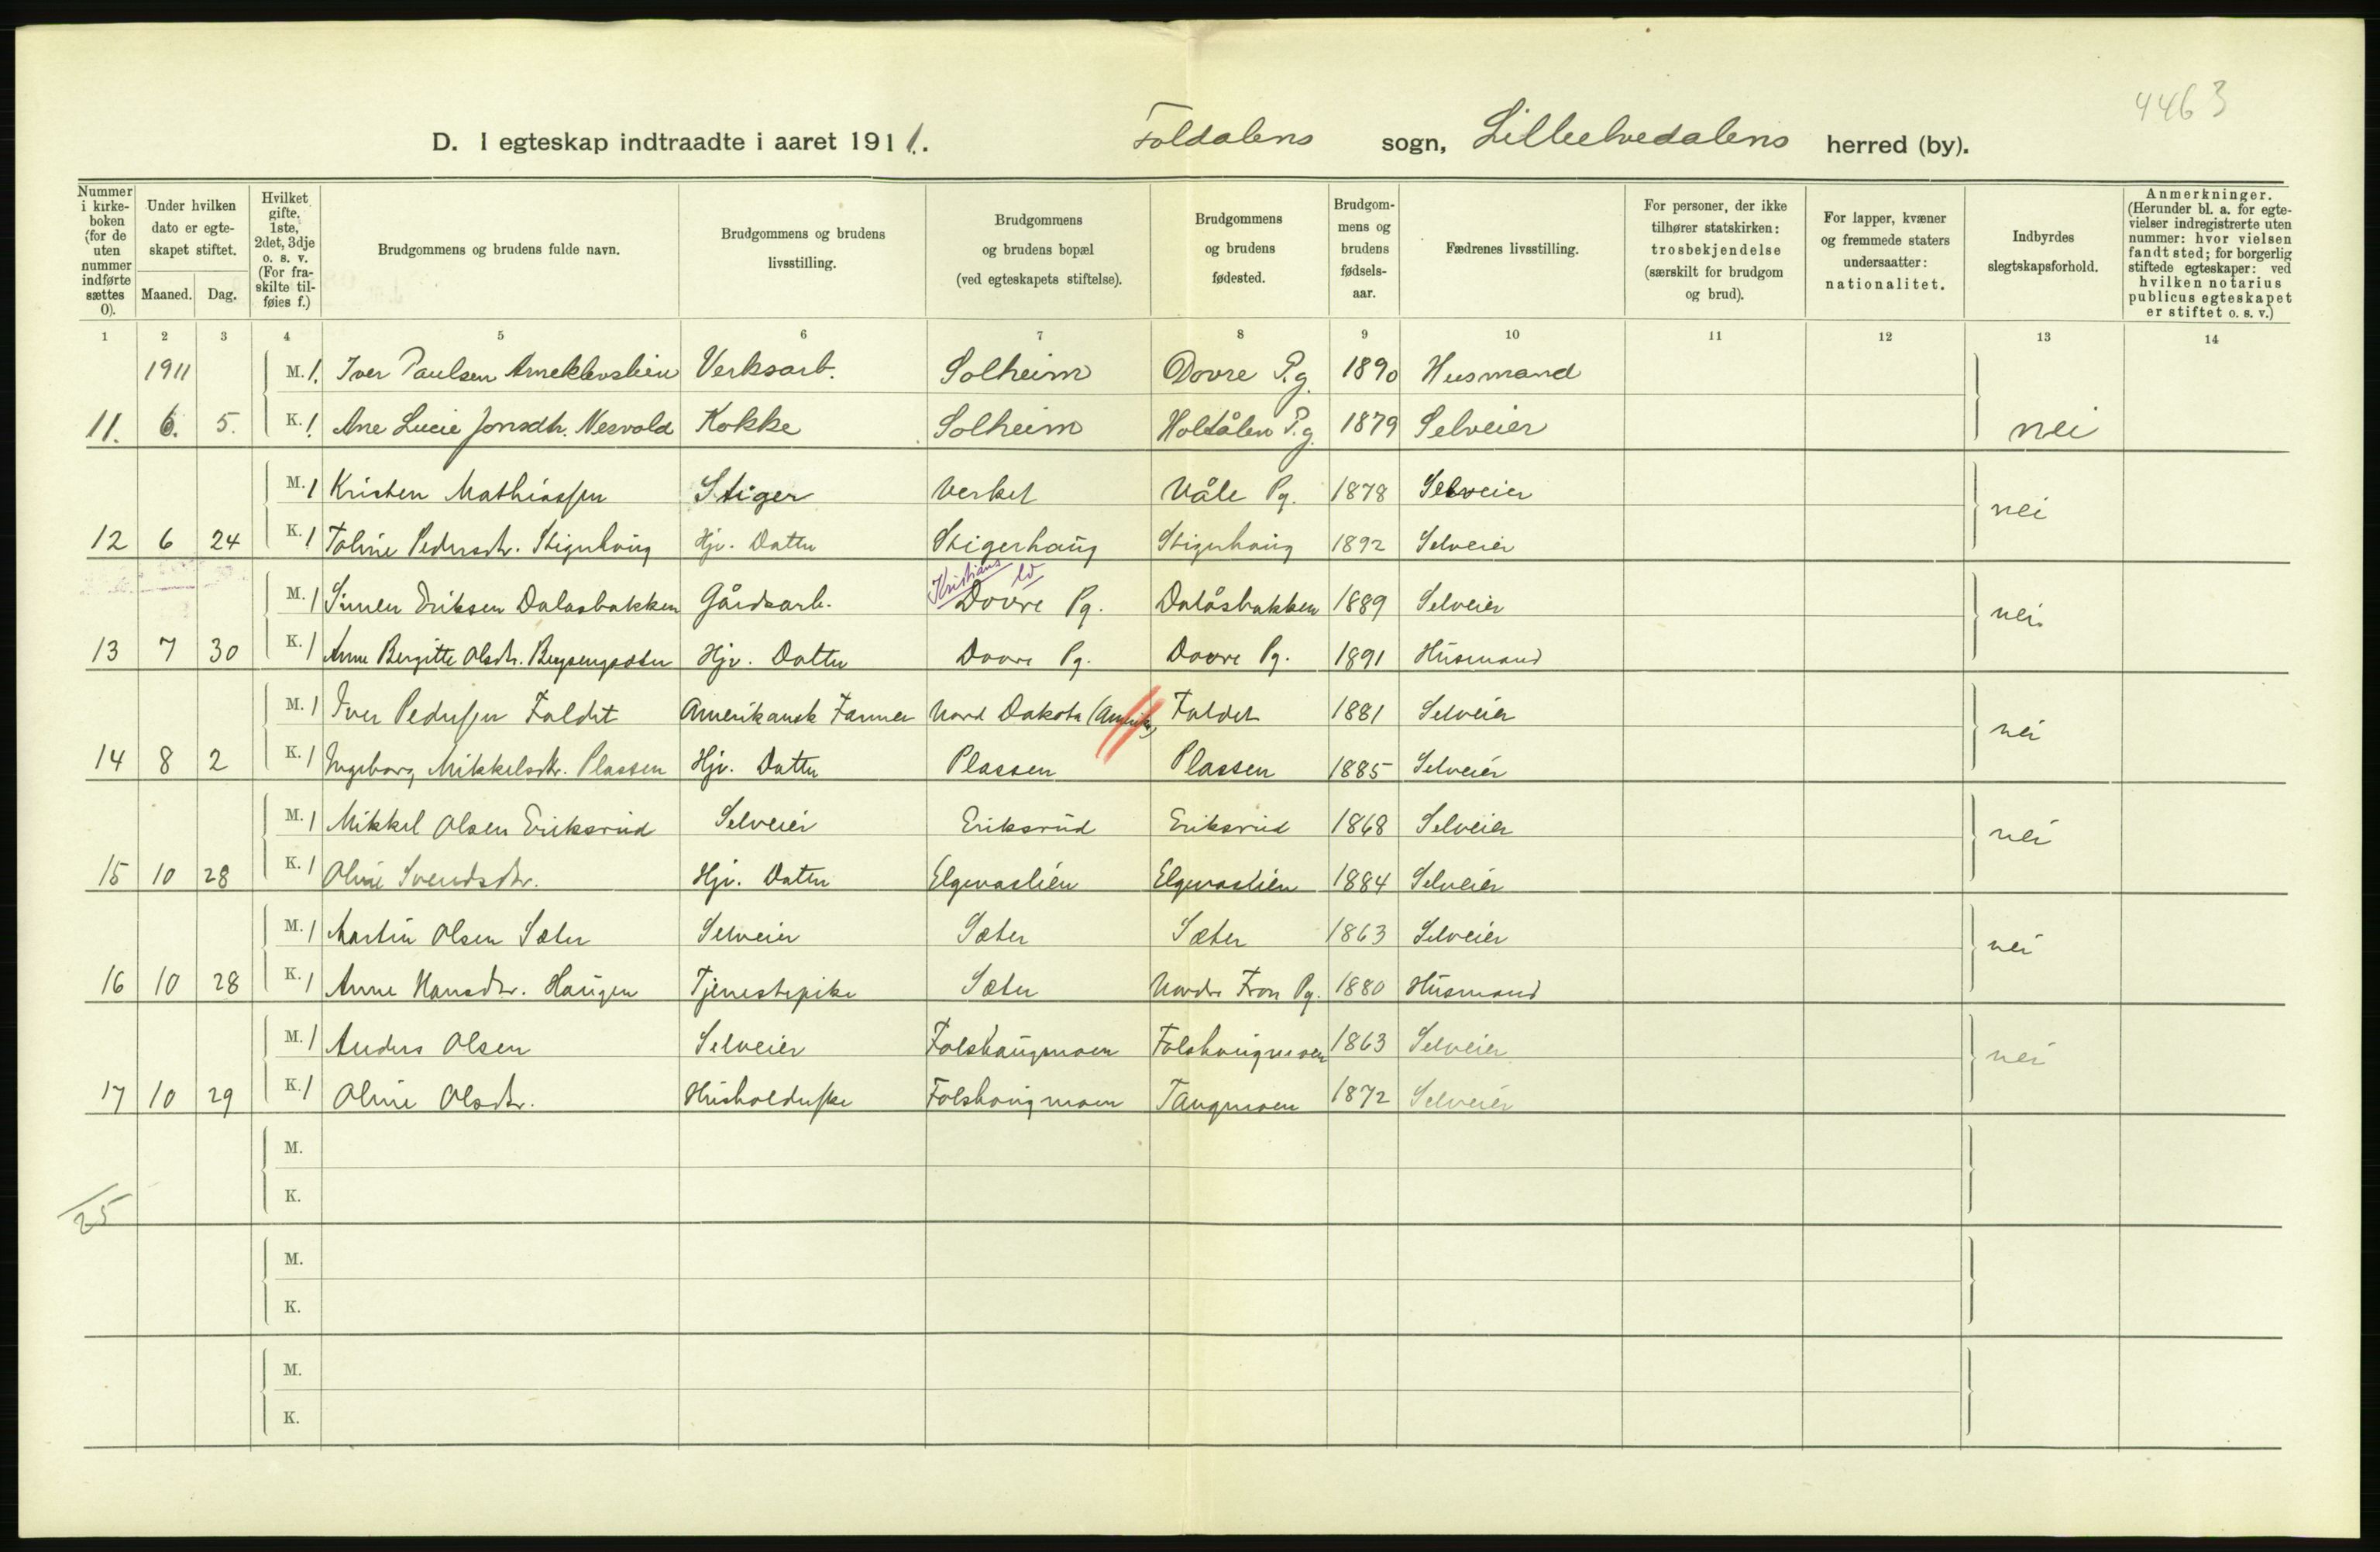 4463
D. I egteskap indtraadte i aaret 1911. Foldalens sogn, Lilleelvedalens herred (by).
Nummer i kirke-boken (for de uten nummer indførte sættes 0).
Under hvilken dato er egte-skapet stiftet.
Maaned. Dag.
Hvilket gifte, 1ste, 2det, 3dje o. s. v. (For fra-skilte til-føies f.)
Brudgommens og brudens fulde navn.
Brudgommens og brudens livsstilling.
Brudgommens og brudens bopæl (ved egteskapets stiftelse).
Brudgommens og brudens fødested.
Brudgom-mens og brudens fødsels-aar.
Fædrenes livsstilling.
For personer, der ikke tilhører statskirken: trosbekjendelse (særskilt for brudgom og brud).
For lapper, kvæner og fremmede staters undersaatter: nationalitet.
Indbyrdes slegtskapsforhold.
Anmerkninger. (Herunder bl. a. for egte-vielser indregistrerte uten nummer: hvor vielsen fandt sted; for borgerlig stiftede egteskaper: ved hvilken notarius publicus egteskapet er stiftet o. s. v.)
1 2 3 4 5 6 7 8 9 10 11 12 13 14
1911 M. 1. Iver Paulsen Verksarb. Solheim Dovre P.g. 1890 Husmand
11. 6. 5. K. 1. Ane Lucie Jonsdtr. Nesvold Kokke Solheim Holtålen P.g. 1879 Selveier nei
M. 1 Kristen Mathiassen Stiger Verket Våle Pg. 1878 Selveier
12 6 24 K. 1 Toline Pedersdtr. Stigerhaug Hjv. Datter Stigerhaug Stigerhaug 1892 Selveier nei
Kristians
M. 1 Simen Eriksen Dalasbakken Gårdsarb. Dovre Pg. Dalåsbakken 1889 Selveier
13 7 30 K. 1 Anne Bergitte Olsdtr. Hjv. Datter Dovre Pg. Dovre Pg. 1891 Husmand nei
M. 1 Iver Pedersen Foldet Amerikansk Farmer Nord Dakota (Amerika) Foldet 1881 Selveier
14 8 2 K. 1 Ingeborg Mikkelsdtr. Plassen Hjv. Datter Plassen Plassen 1885 Selveier nei
M. 1 Mikkel Olsen Eriksrud Selveier Eriksrud Eriksrud 1868 Selveier
15 10 28 K. 1 Oline Svendsdtr. Hjv. Datter Elgvaslien Elgvaslien 1884 Selveier nei
M. 1 Martin Olsen Sæter Selveier Sæter Sæter 1863 Selveier
16 10 28 K. 1 Anne Hansdtr. Haugen Tjenestepike Sæter Nordre Fron Pg. 1880 Husmand nei
M. 1 Anders Olsen Selveier Folshaugmoen Folshaugmoen 1863 Selveier
17 10 29 K. 1 Oline Olsdtr. Husholderske Folshaugmoen Tangmoen 1872 Selveier nei
M.
K.
25
M.
K.
M.
K.